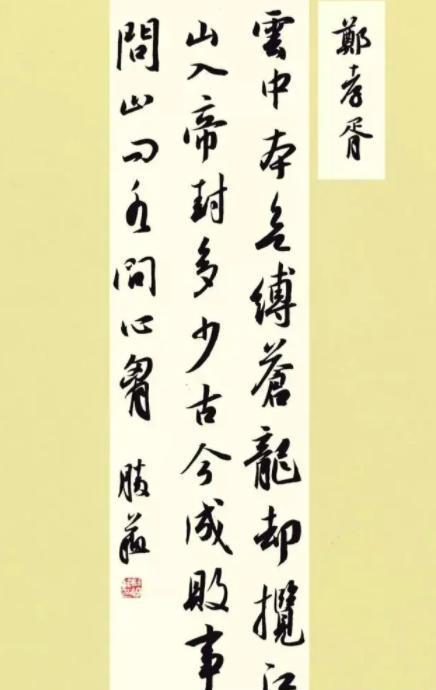 鄭孝胥
雲中本縛蒼龍却攬江
山入帝封多少古今成敗事
問山問心胷